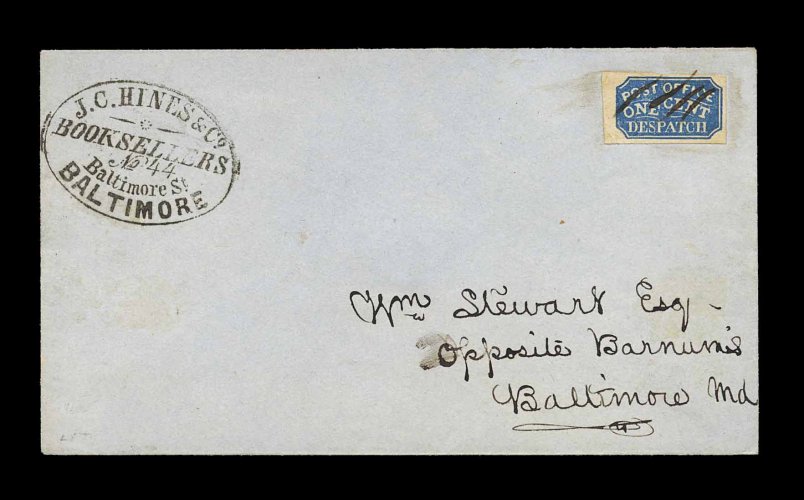 J.C. HINES & Co.
BOOKSELLERS
No. 44
Baltimore St.
BALTIMORE
POST OFFICE
ONE CENT
DESPATCH
Wm Stewart Esq -
Opposite Barnum's
Baltimore Md